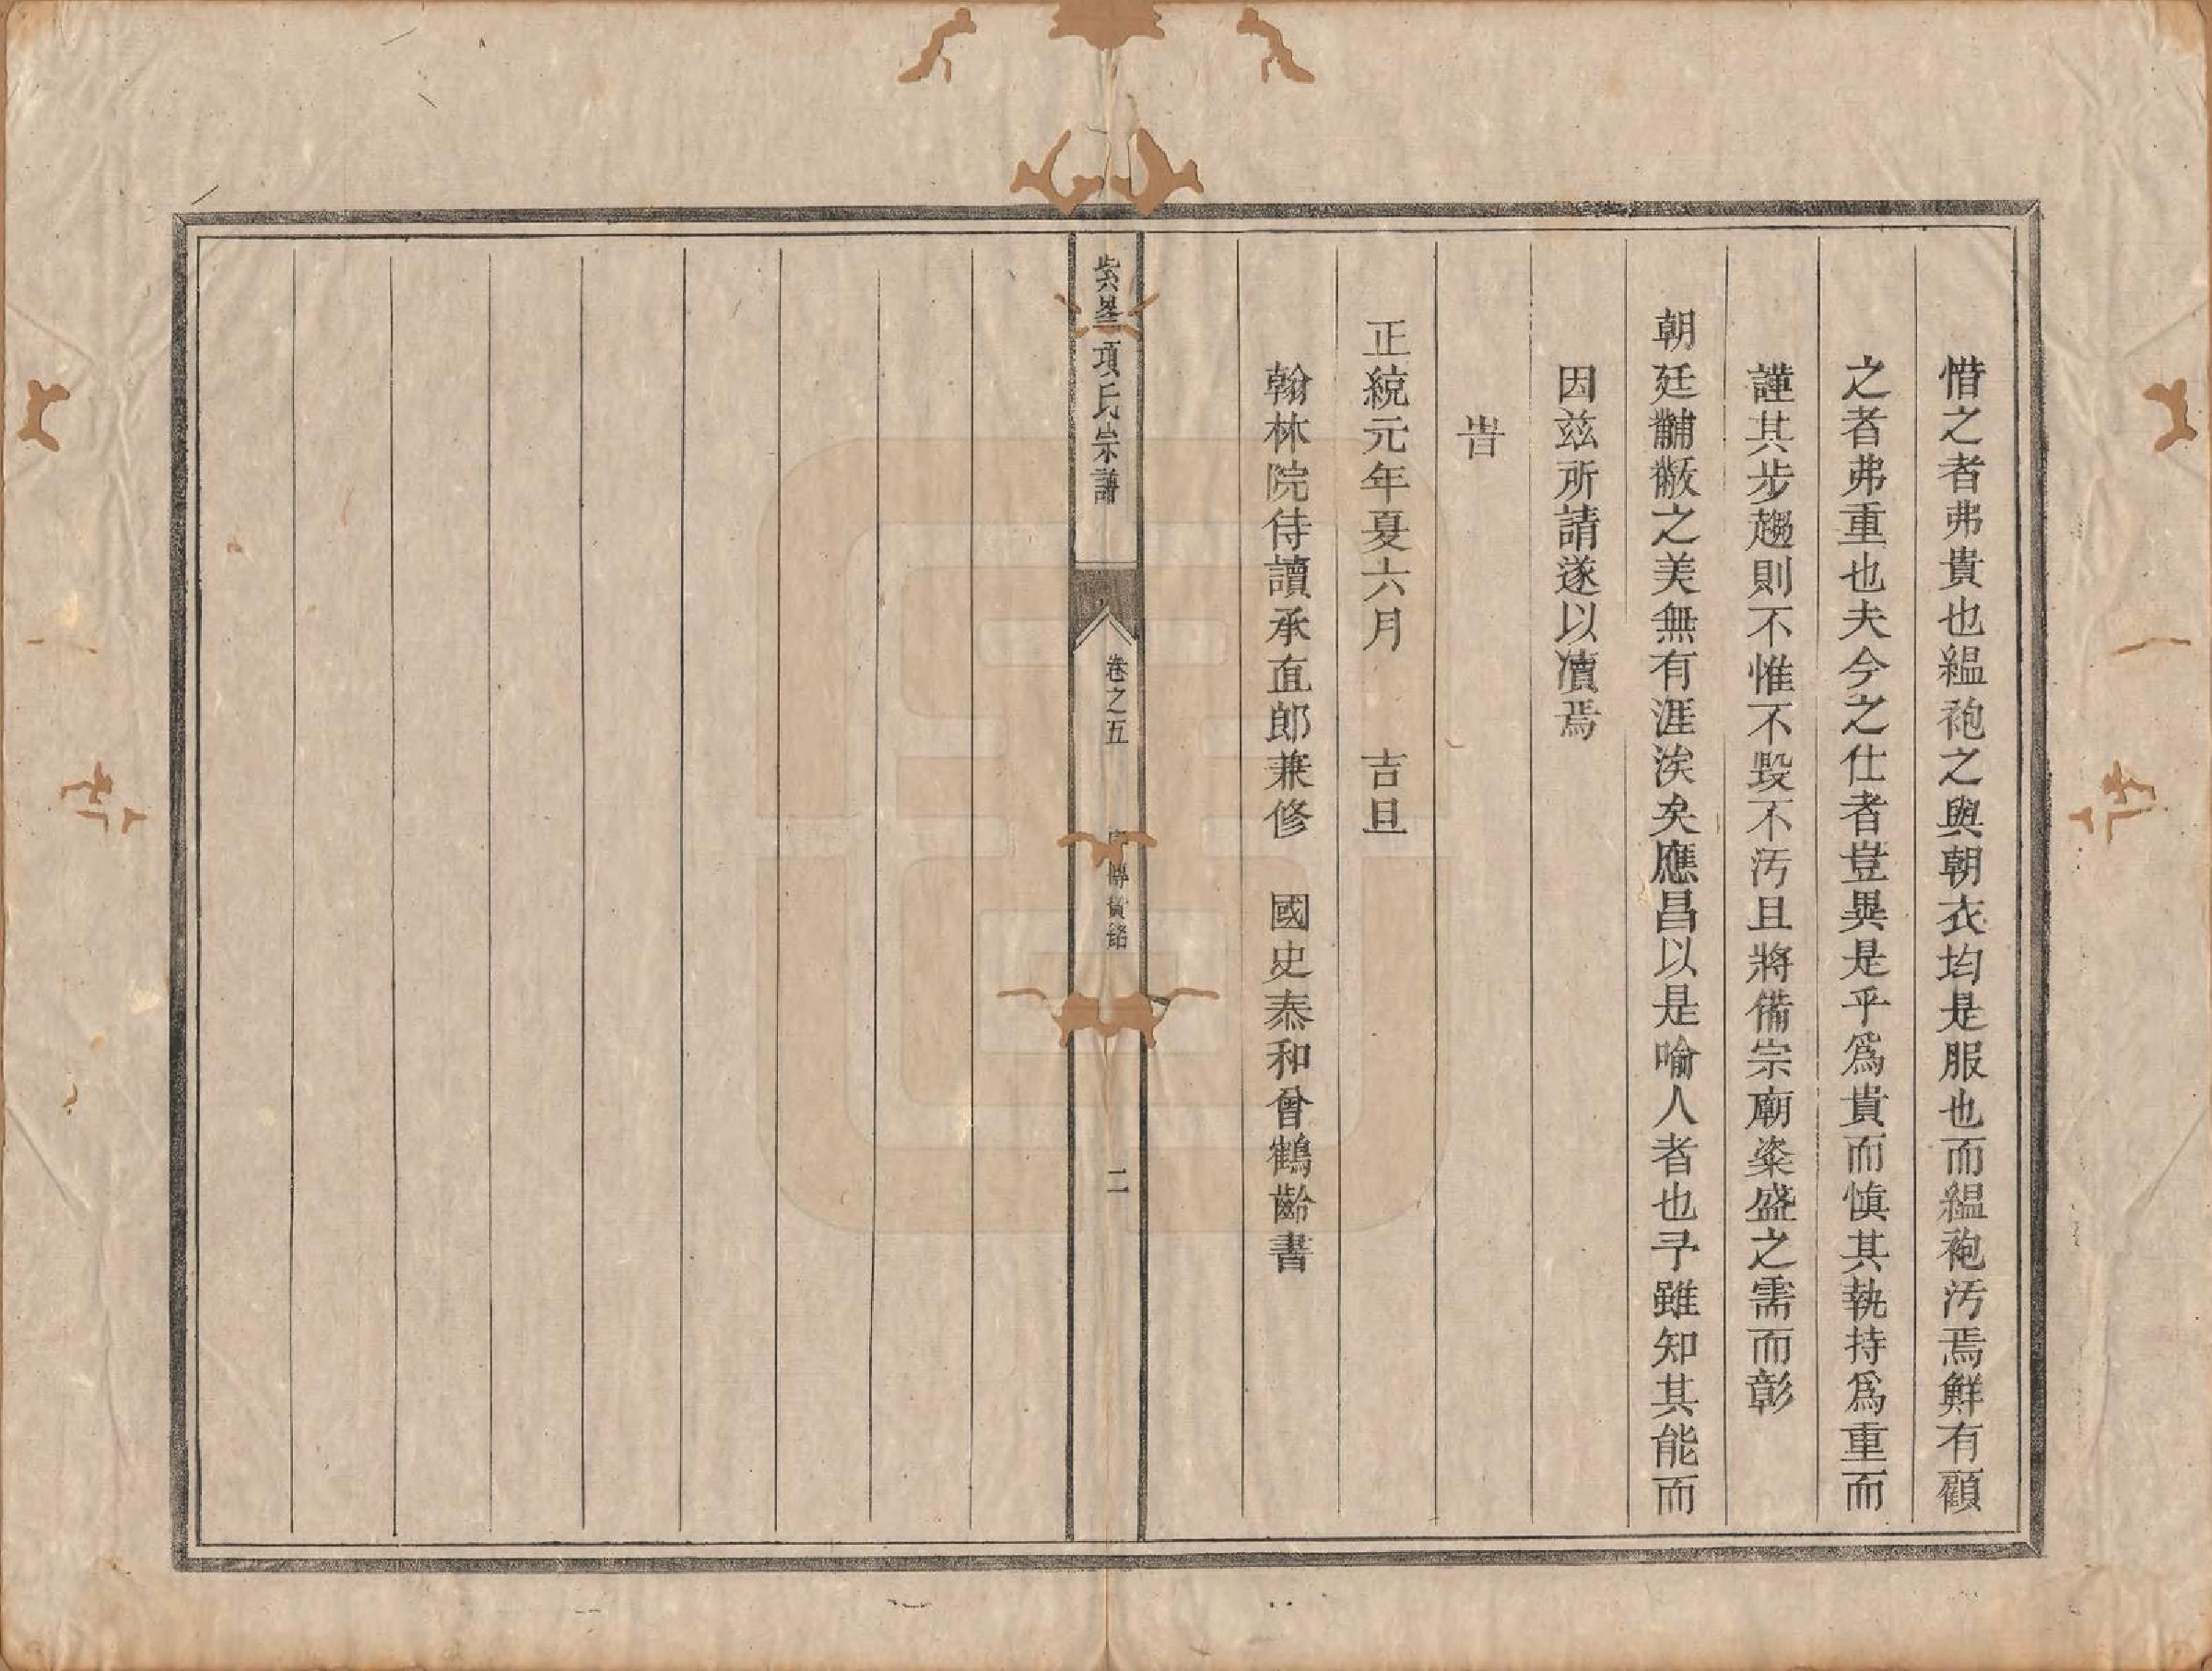 惜之者弗貴也縕袍之與朝衣均是服也而縕袍汚焉鮮有顧
之者弗重也夫今之仕者豈異是乎爲貴而慎其執持爲重而
謹其步趨則不惟不毀不汚且將備宗廟粢盛之需而彰
朝廷黼黻之美無有涯涘矣應昌以是喻人者也予雖知其能而
因兹所請遂以凟焉
旹
正統元年夏六月　吉旦
翰林院侍讀承直郎兼修　國史泰和曾鶴齡書
項氏宗譜
卷之五
傳賛銘
二